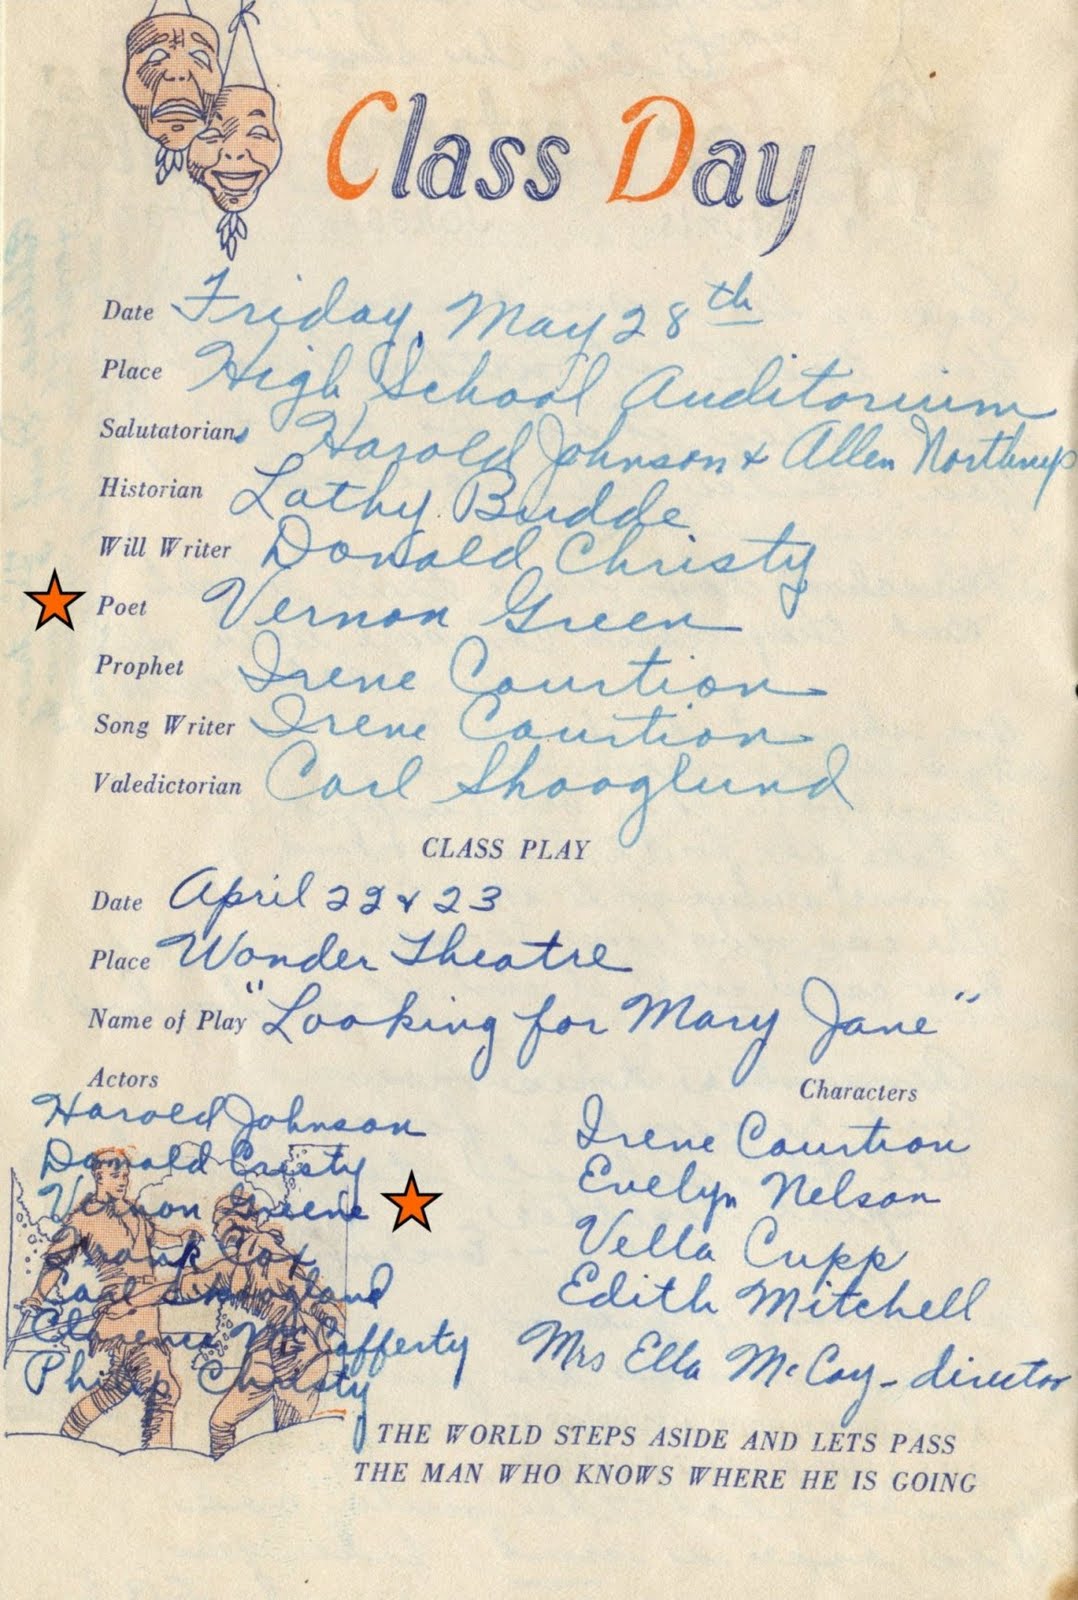 Class Day
Date Friday, May 28th
Place High School Auditorium
Salutatorians Harold Johnson & Allen Northrup
Historian Lathy Budde
Will Writer Donald Christy
Poet Vernon Green
Prophet Irene Courtion
Song Writer Irene Courtion
Valedictorian Carl Skooglund
CLASS PLAY
Date April 22 & 23
Place Wonder Theatre
Name of Play "Looking for Mary Jane"
Actors
Characters
Harold Johnson
Donald Cristy
Vernon Greene
Frank Cox
Carl Skoogland
Clarence McCafferty
Philip Christy
Irene Courtion
Evelyn Nelson
Vella Cupp
Edith Mitchell
Mrs Ella McCoy - director
THE WORLD STEPS ASIDE AND LETS PASS
THE MAN WHO KNOWS WHERE HE IS GOING